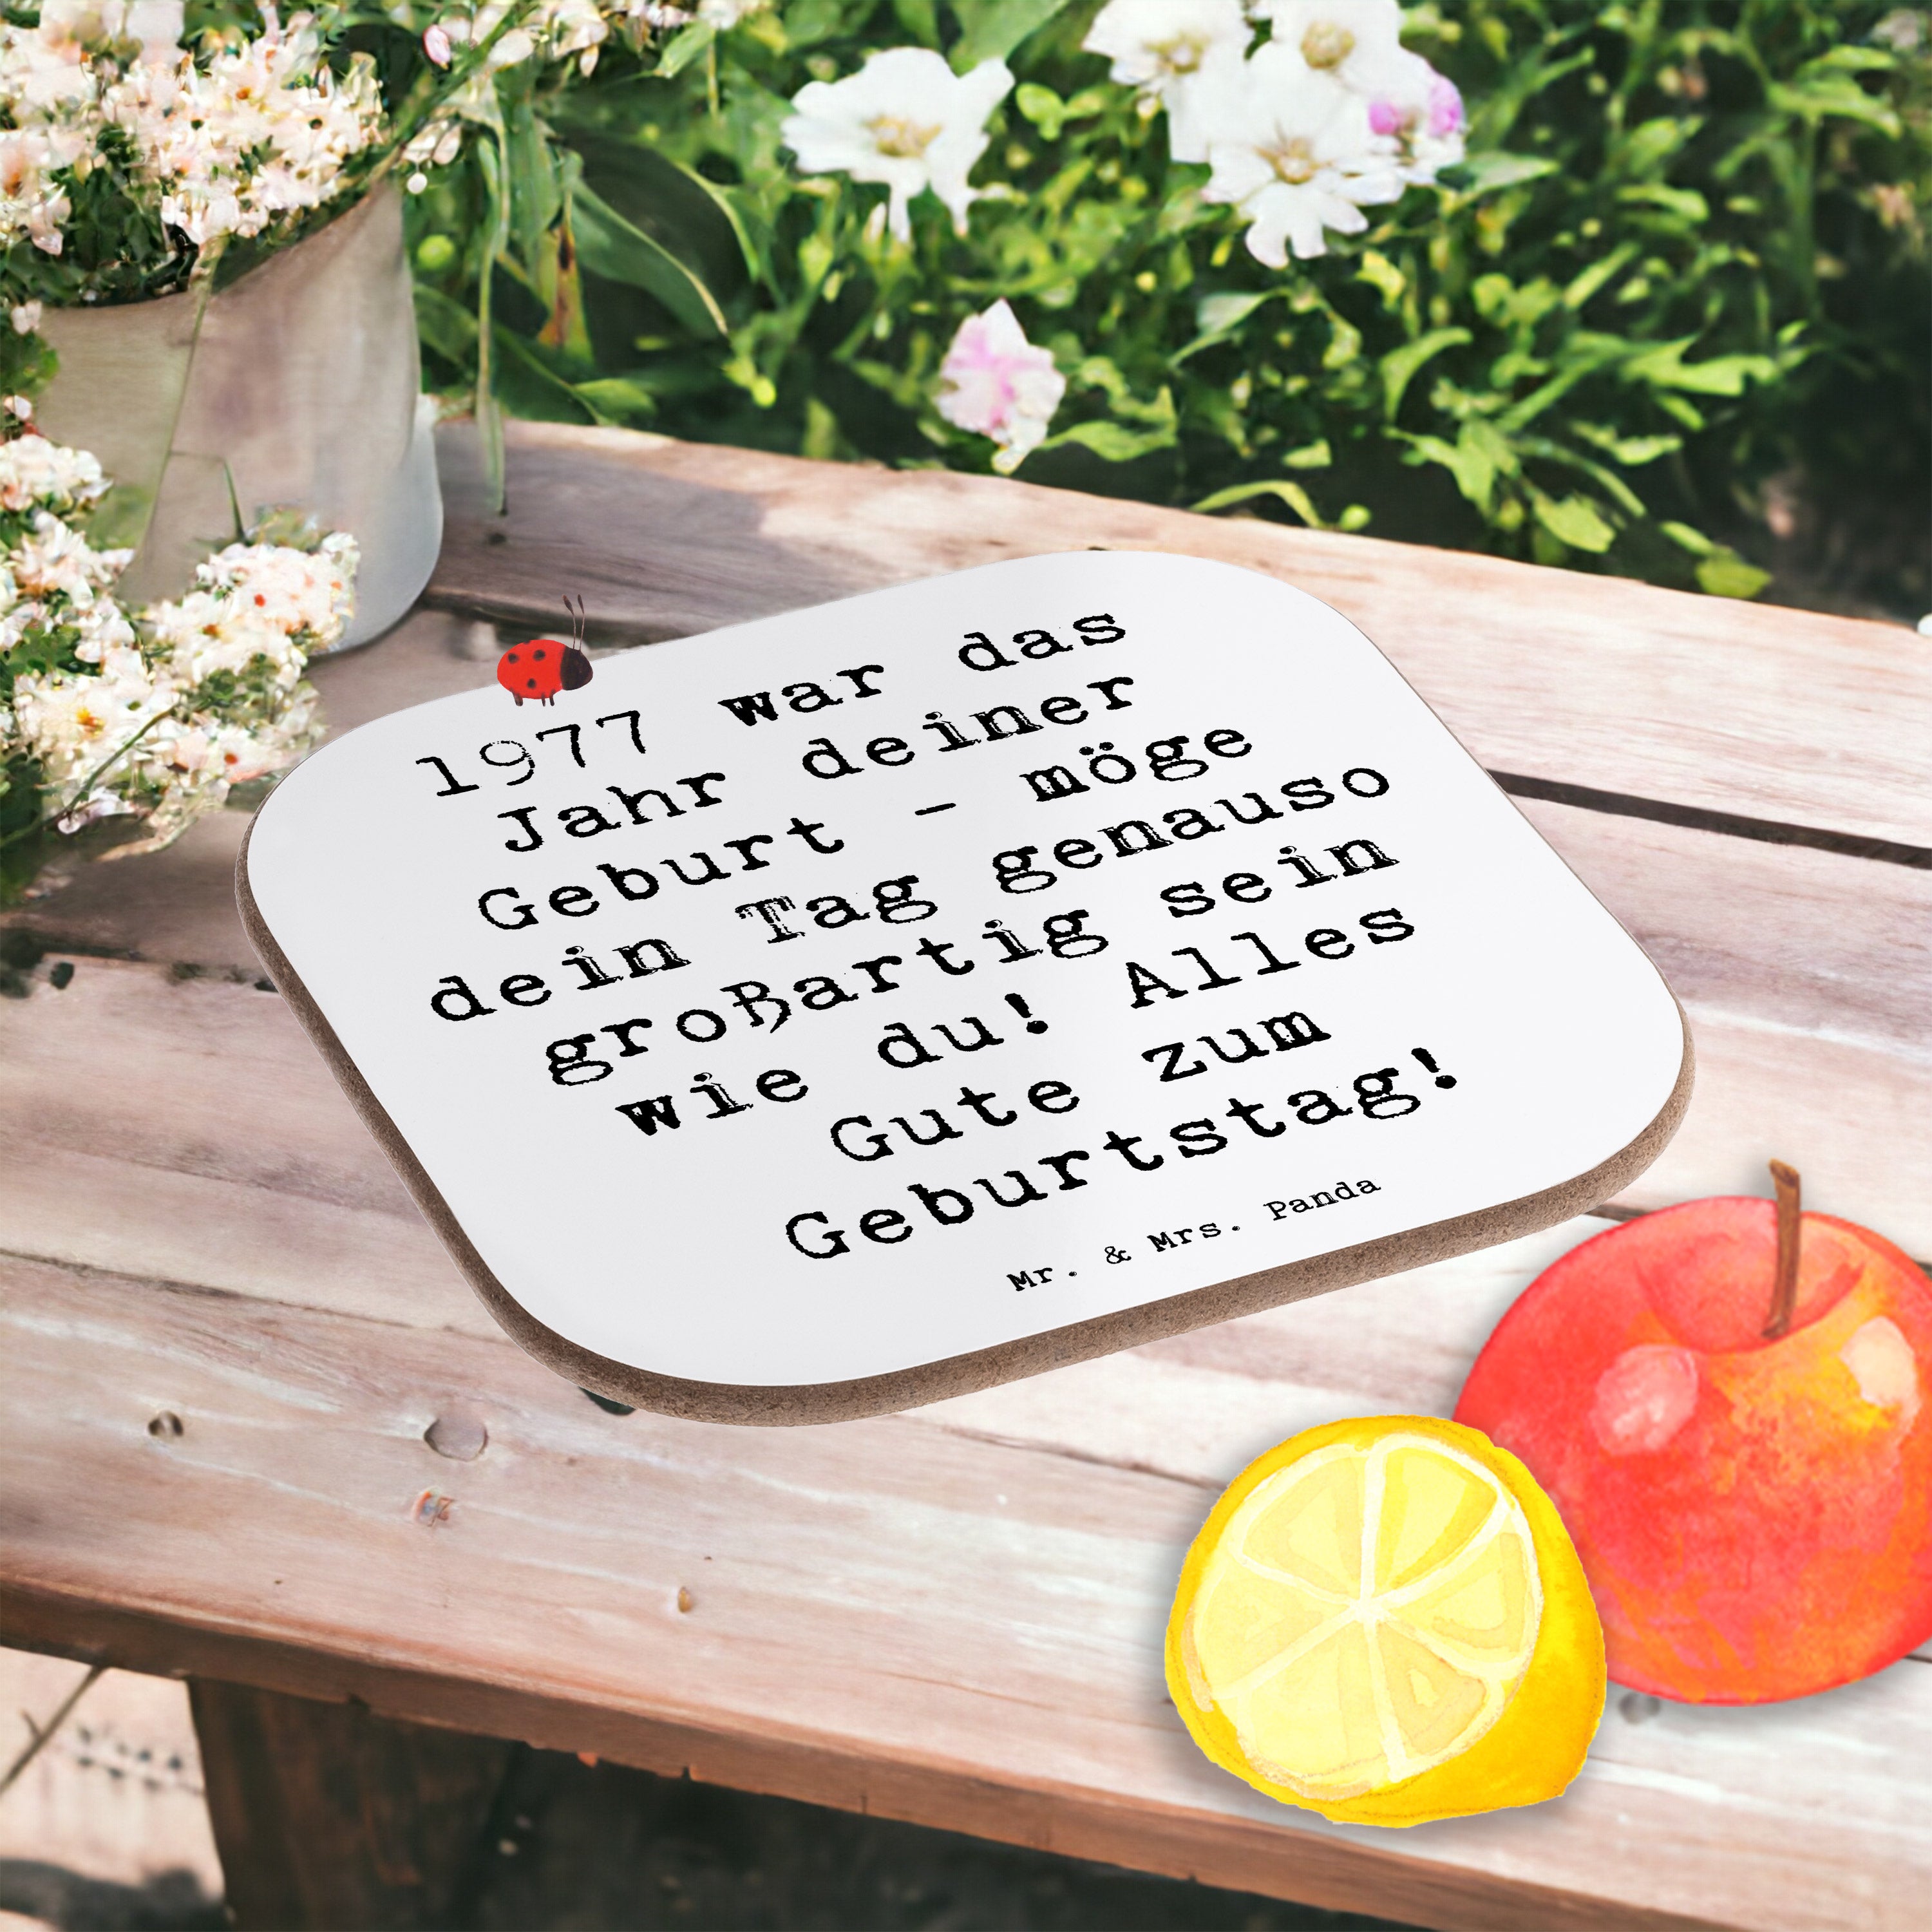 1977 war das
Jahr deiner
Geburt - möge
dein Tag genauso
großartig sein
wie du! Alles
Gute zum
Geburtstag!
Mr. & Mrs. Panda